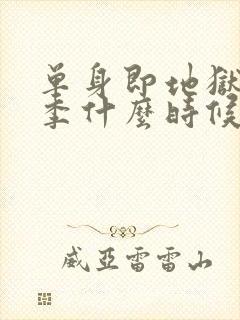 單身即地獄
季什麼時候
威亞雷雷山